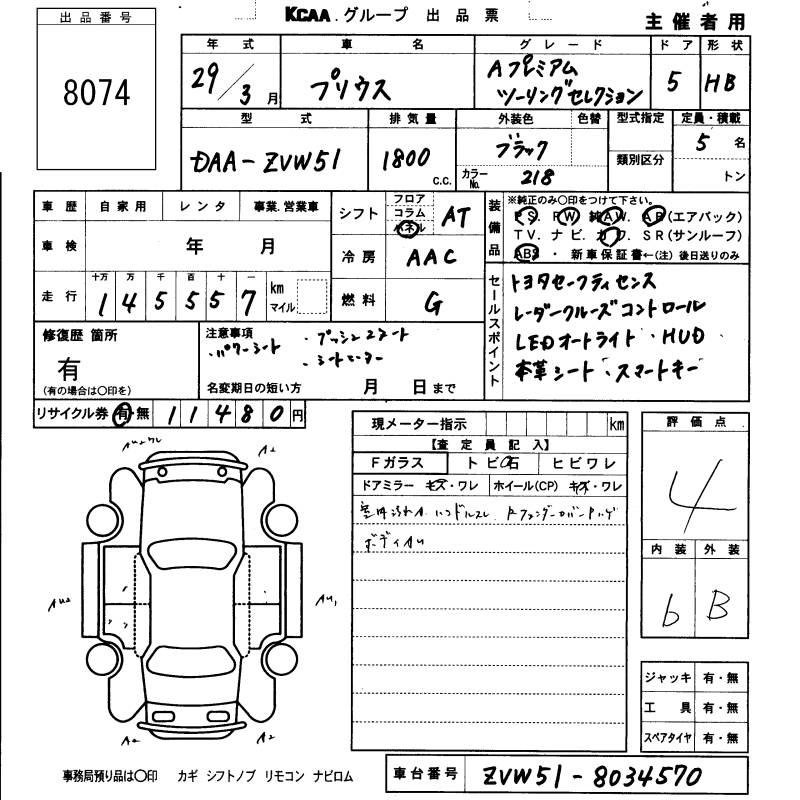 出品番号
8074
KCAA.グループ 出品票
主催者用
年式 車名 グレード ドア 形状
29/3月 プリウス Aプレミアム ツーリングセレクション 5 HB
型式 排気量 外装色 色替 型式指定 定員・積載
DAA-ZVW51 1800 c.c. ブラック 5名
カラーNo. 218 類別区分 トン
車歴 自家用 レンタ 事業.営業車
車検 年 月
走行 十万 万 千 百 十 一
145557 km マイル
シフト フロア コラム パネル AT
冷房 AAC
燃料 G
装備品 ※純正のみ○印をつけて下さい。
P.S. P.W 純A.W. A.B(エアバック)
T V. ナビ. カワ. S R(サンルーフ)
ABS . 新車保証書←(注)後日送りのみ
セールスポイント
トヨタセーフティセンス
レーダークルーズコントロール
LEDオートライト・HUD
本革シート・スマートキー
修復歴 箇所
有
(有の場合は○印を)
注意事項
・パワーシート ・プッシュスタート
・シートヒーター
名変期日の短い方 月 日まで
リサイクル券 有・無 11480円
現メーター指示 km
【査定員記入】
Fガラス トビ石 ヒビワレ
ドアミラー キズ・ワレ ホイール(CP) キズ・ワレ
ハンドルスレ
ボディAU
評価点
4
内装 外装
b B
AU2
AU1
A2
A2
ジャッキ 有・無
工具 有・無
スペアタイヤ 有・無
事務局預り品は○印 カギ シフトノブ リモコン ナビロム
車台番号 ZVW51-8034570